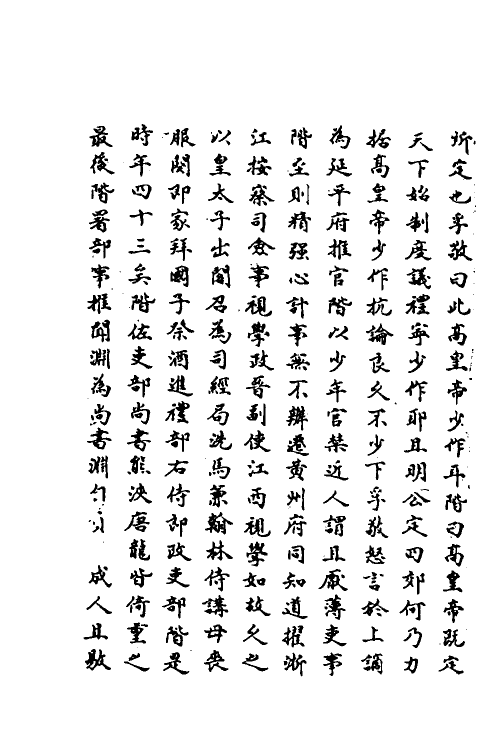 斨定也孚敬曰此高皇帝少作耳階曰高皇帝旣定
天下始制度議禮寧少作耶且明公定四郊何乃力
据高皇帝少作抗論良久不少下孚敬怒言於上謫
為延平府推官階以少年官禁近人謂且厭薄吏事
階至則精强心計事無不辦遷黄州府同知道擢浙
江按察司僉事視學政晉副使江西視學如故久之
以皇太子出閣召為司經局洗馬兼翰林侍講母喪
服闋即家拜國子祭酒進禮部右侍郎政吏部階是
時年四十三矣階佐吏部尚書熊浹唐龍皆倚重之
最後階署部事推聞淵為尚書淵 成人且敭